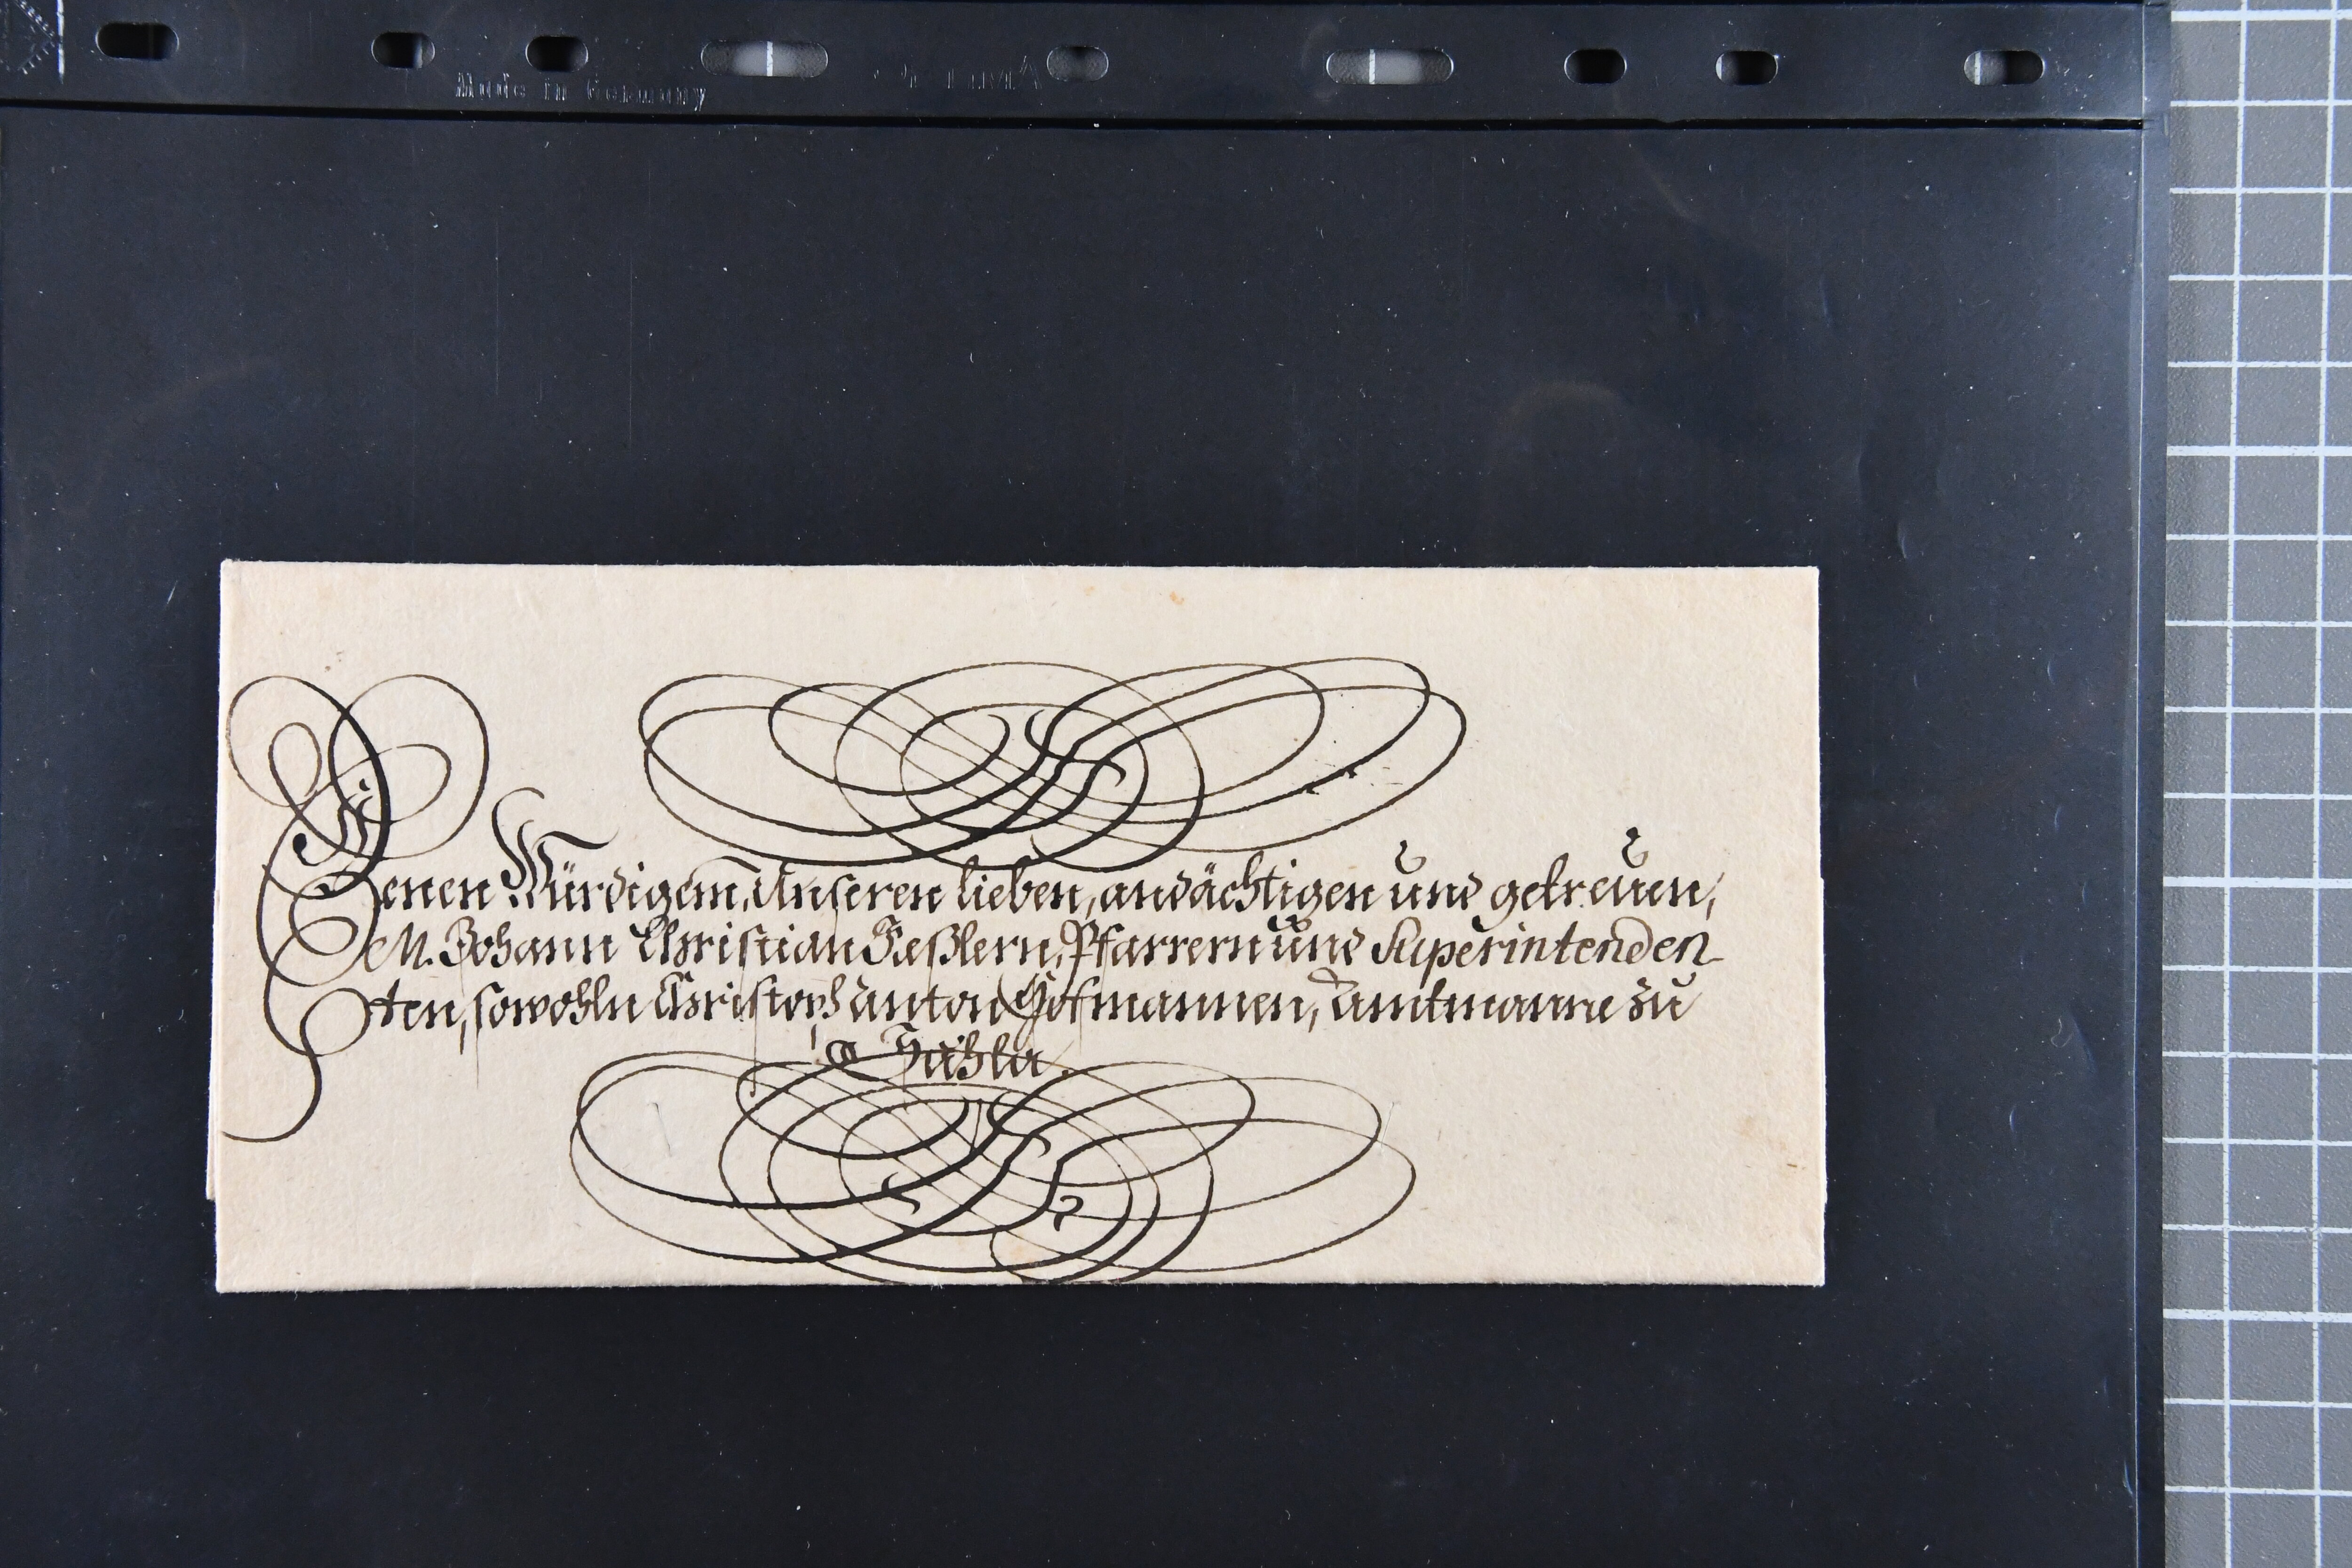 Made in Germany
Denen Würdigem, Unseren lieben, andächtigen und getreuen,
M. Johann Christian Feßlern, Pfarrern und Superintenden-
ten, sowohln Christoph Anton Hofmannen, Amtmanne zu
Suhla.